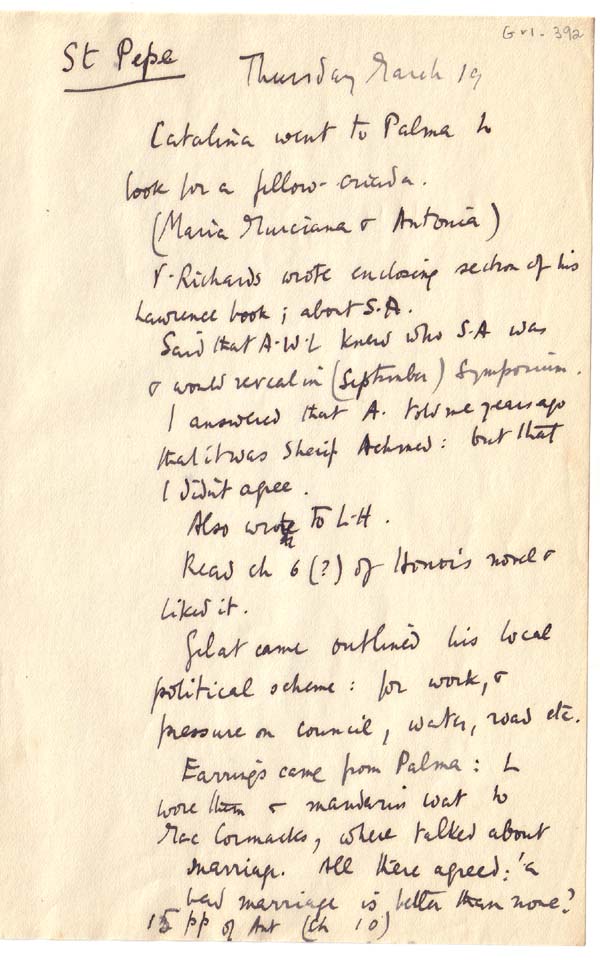 G v1 - 392
St Pepe Thursday March 19
Catalina went to Palma to
look for a fellow-criada.
(Maria Murciana & Antonia)
V-Richards wrote enclosing section of his
Lawrence book; about S.A.
Said that A-W-L knew who S-A was
& would reveal in (September) Symposium.
I answered that A. told me years ago
that it was Sherif Achmed: but that
I didn't agree.
Also wrote to L-H.
Read ch 6 (?) of Honor's novel &
liked it.
Gelat came outlined his local
political scheme: for work, &
pressure on council, water, road etc.
Earrings came from Palma: L
wore them & mandarin coat to
MacCormacks, where talked about
marriage. All there agreed: 'a
bad marriage is better than none?
15 pp of Ant (ch 10)